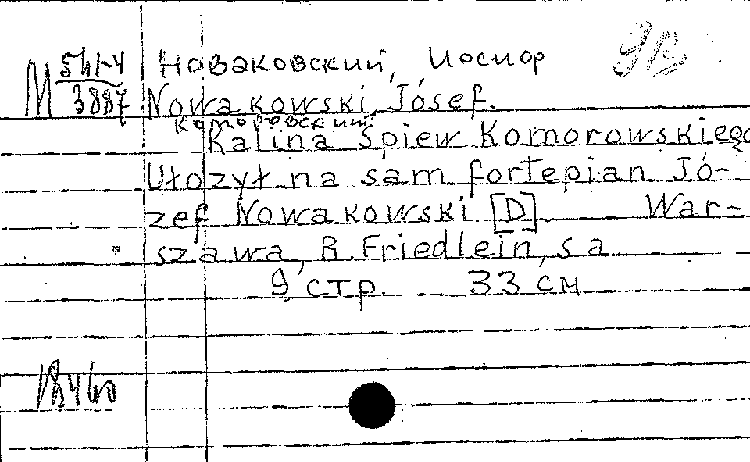 Новаковский, Иосиф
М 541-4
3887
Nowakowski, Józef.
Коморовский
Kalina Śpiew Komorowskiego
Ułożył na sam fortepian Jó-
zef Nowakowski [D] War-
szawa, R Friedlein, s a
9 стр. 33 см